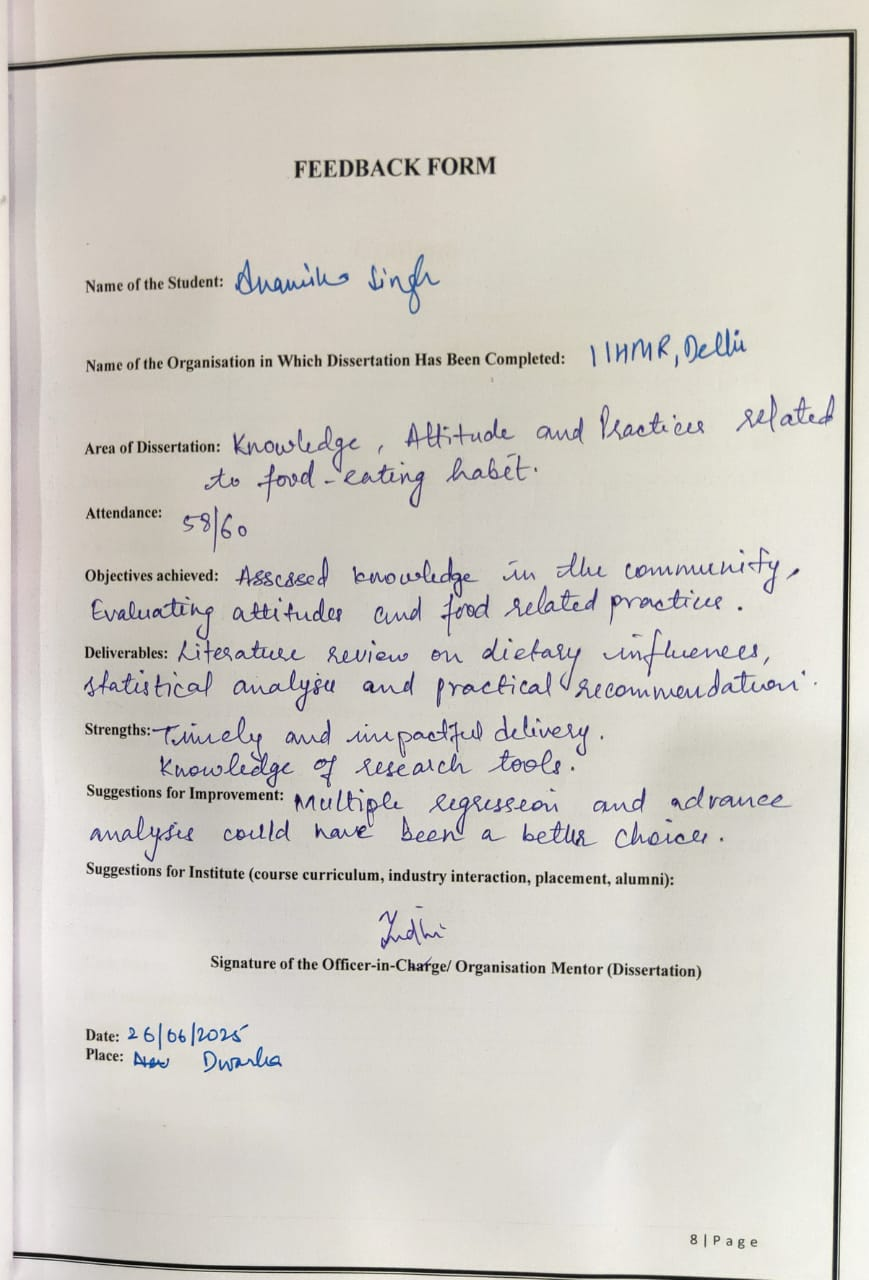 FEEDBACK FORM
Name of the Student: Anamika Singh
Name of the Organisation in Which Dissertation Has Been Completed: IIHMR, Delhi
Area of Dissertation: Knowledge, Attitude and Practices related
to food-eating habit.
Attendance: 58/60
Objectives achieved: Assessed knowledge in the community,
Evaluating attitudes and food related practices.
Deliverables: Literature review on dietary influences,
statistical analysis and practical recommendation.
Strengths: Timely and impactful delivery.
Knowledge of research tools.
Suggestions for Improvement: Multiple regression and advance
analysis could have been a better choice.
Suggestions for Institute (course curriculum, industry interaction, placement, alumni):
Signature of the Officer-in-Charge/ Organisation Mentor (Dissertation)
Date: 26/06/2025
Place: Dwarka
8 | Page